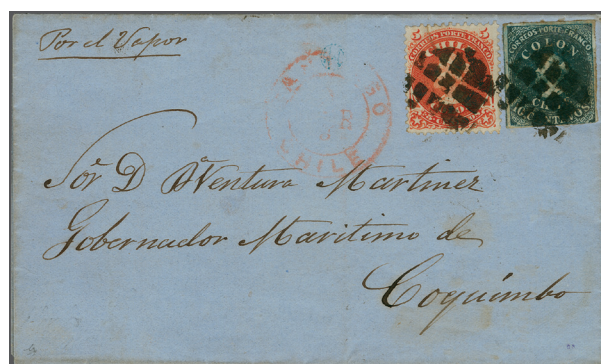 Por el Vapor
5 5
CORREOS PORTE FRANCO
CHILE
CORREOS PORTE FRANCO
COLON
CHILE
Sor. D Bta Ventura Martinez
Gobernador Maritimo de
Coquimbo